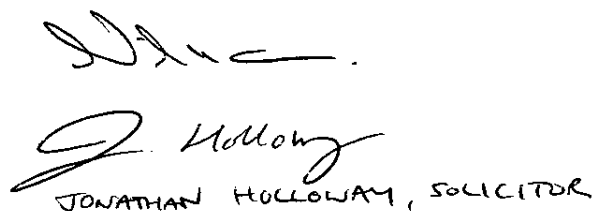 J. Holloway
JONATHAN HOLLOWAY, SOLICITOR